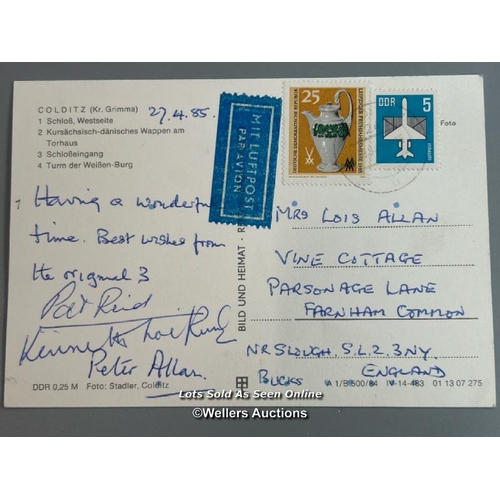 COLDITZ (Kr. Grimma)
27.4.85.
1 Schloß, Westseite
2 Kursächsisch-dänisches Wappen am
Torhaus
3 Schloßeingang
4 Turm der Weißen-Burg
Having a wonderful
time. Best wishes from
the original 3
Pat Reid
Kenneth Lockwood
Peter Allan.
DDR 0,25 M Foto: Stadler, Colditz
MIT LUFTPOST
PAR AVION
BILD UND HEIMAT · RE
25
DEUTSCHE DEMOKRATISCHE REPUBLIK
DDR 5
Foto
MRS LOIS ALLAN
VINE COTTAGE
PARSONAGE LANE
FARNHAM COMMON
NR SLOUGH. S.L.2. 3NY.
BUCKS ENGLAND
A 1/B 500/84 IV-14-483 01 13 07 275
Lots Sold As Seen Online
©Wellers Auctions